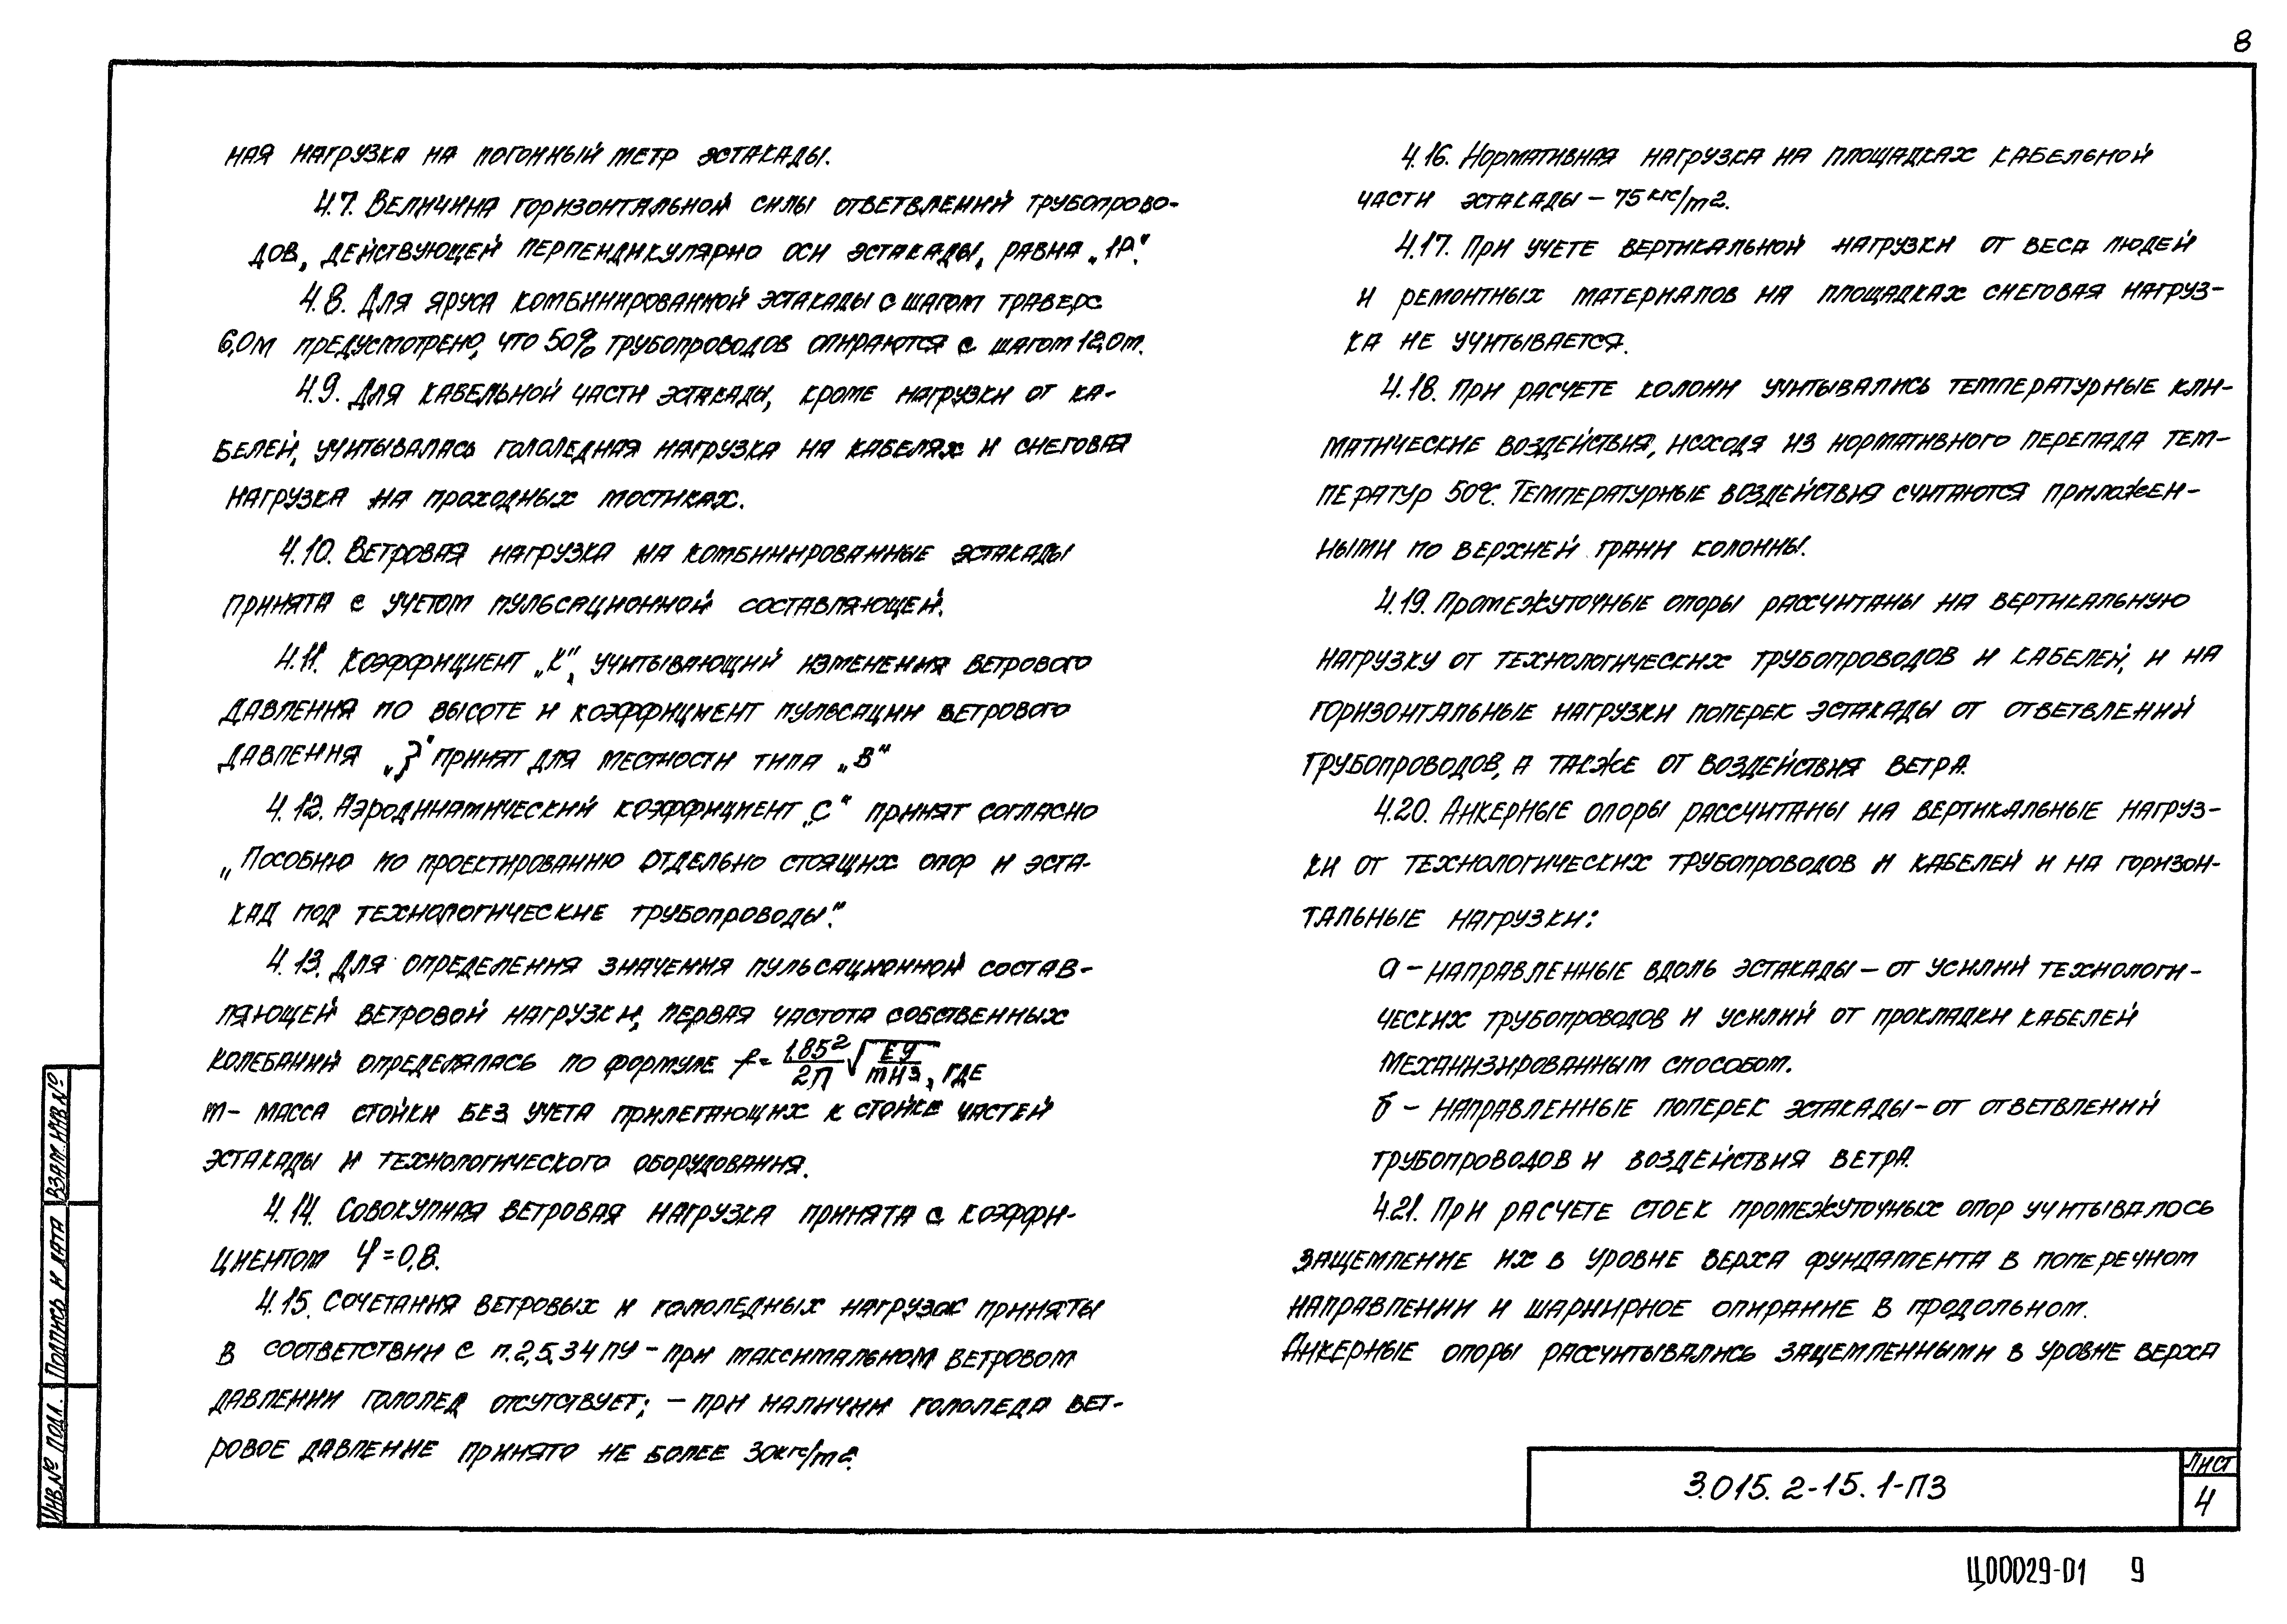 8
ная нагрузка на погонный метр эстакады.
4.7. Величина горизонтальной силы ответвлений трубопрово-
дов, действующей перпендикулярно оси эстакады, равна „1Р".
4.8. Для яруса комбинированной эстакады с шагом траверс
6,0м предусмотрено, что 50% трубопроводов опираются с шагом 12,0м.
4.9. Для кабельной части эстакады, кроме нагрузки от ка-
белей, учитывалась гололедная нагрузка на кабелях и снеговая
нагрузка на проходных мостиках.
4.10. Ветровая нагрузка на комбинированные эстакады
принята с учетом пульсационной составляющей.
4.11. Коэффициент „К", учитывающий изменения ветрового
давления по высоте и коэффициент пульсации ветрового
давления „ζ" принят для местности типа „В"
4.12. Аэродинамический коэффициент „С" принят согласно
„Пособию по проектированию отдельно стоящих опор и эста-
кад под технологические трубопроводы".
4.13. Для определения значения пульсационной состав-
ляющей ветровой нагрузки, первая частота собственных
колебаний определялась по формуле f = 1.85²/2П √(EY/mH3), где
m – масса стойки без учета прилегающих к стойке частей
эстакады и технологического оборудования.
4.14. Совокупная ветровая нагрузка принята с коэффи-
циентом Ψ = 0,8.
4.15. Сочетания ветровых и гололедных нагрузок приняты
в соответствии с п.2,5,34 ПУ – при максимальном ветровом
давлении гололед отсутствует; – при наличии гололеда вет-
ровое давление принято не более 30кгс/м2.
4.16. Нормативная нагрузка на площадках кабельной
части эстакады – 75 кгс/м2.
4.17. При учете вертикальной нагрузки от веса людей
и ремонтных материалов на площадках снеговая нагруз-
ка не учитывается.
4.18. При расчете колонн учитывались температурные кли-
матические воздействия, исходя из нормативного перепада тем-
ператур 50°С. Температурные воздействия считаются приложен-
ными по верхней грани колонны.
4.19. Промежуточные опоры рассчитаны на вертикальную
нагрузку от технологических трубопроводов и кабелей, и на
горизонтальные нагрузки поперек эстакады от ответвлений
трубопроводов, а также от воздействия ветра.
4.20. Анкерные опоры рассчитаны на вертикальные нагруз-
ки от технологических трубопроводов и кабелей и на горизон-
тальные нагрузки:
а – направленные вдоль эстакады – от усилий технологи-
ческих трубопроводов и усилий от прокладки кабелей
механизированным способом.
б – направленные поперек эстакады – от ответвлений
трубопроводов и воздействия ветра.
4.21. При расчете стоек промежуточных опор учитывалось
защемление их в уровне верха фундамента в поперечном
направлении и шарнирное опирание в продольном.
Анкерные опоры рассчитывались защемленными в уровне верха
Взам. инв. №
Подпись и дата
Инв. № подл.
3.015.2-15.1-ПЗ
Лист
4
Ц00029-01 9